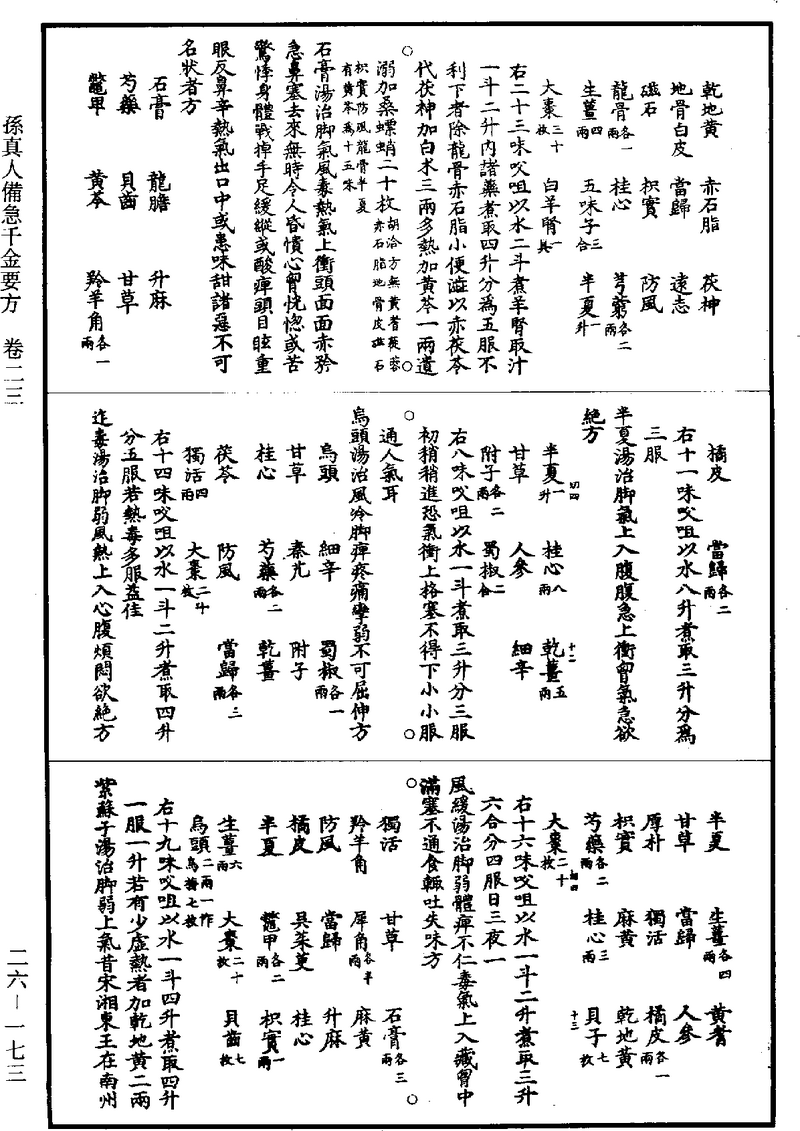 乾地黃 赤石脂 茯神
地骨白皮 當歸 遠志
磁石 枳實 防風
龍骨各一兩 桂心 芎藭各二兩
生薑四兩 五味子三合 半夏一升
大棗三十枚 白羊腎一具
右二十三味㕮咀以水二斗煮羊腎取汁
一斗二升內諸藥煮取四升分為五服不
利下者除龍骨赤石脂小便澁以赤茯苓
代茯神加白朮三兩多熱加黃芩一兩遺
溺加桑螵蛸二十枚胡洽方無黃耆茯苓赤石脂地骨皮磁石
枳實防風龍骨半夏有黃芩為十五味
石膏湯治腳氣風毒熱氣上衝頭面面赤矜
急鼻塞去來無時令人昏憒心胷恍惚或苦
驚悸身體戰掉手足緩縱或酸痺頭目眩重
眼反鼻辛熱氣出口中或患味甜諸惡不可
名狀者方
石膏 龍膽 升麻
芍藥 貝齒 甘草
鼈甲 黃芩 羚羊角各一兩
橘皮 當歸各二兩
右十一味㕮咀以水八升煮取三升分為
三服
半夏湯治腳氣上入腹腹急上衝胷氣急欲
絕方
半夏一升切四 桂心八兩 乾薑五兩
十二
甘草 人參 細辛
附子各二兩 蜀椒二合
右八味㕮咀以水一斗煮取三升分三服
初稍稍進恐氣衝上格塞不得下小小服
通人氣耳
烏頭湯治風冷腳痺疼痛攣弱不可屈伸方
烏頭 細辛 蜀椒各一兩
甘草 秦艽 附子
桂心 芍藥各二兩 乾薑
茯苓 防風 當歸各三兩
獨活四兩 大棗二十枚
右十四味㕮咀以水一斗二升煮取四升
分五服若熱毒多服益佳
追毒湯治腳弱風熱上入心腹煩悶欲絕方
半夏 生薑各四兩 黃耆
甘草 當歸 人參
厚朴 獨活 橘皮各一兩
枳實 麻黃 乾地黃
芍藥各二兩 桂心三兩 貝子七枚
十三
大棗二十枚切四
右十六味㕮咀以水一斗二升煮取三升
六合分四服日三夜一
風緩湯治腳弱體痺不仁毒氣上入藏胷中
滿塞不通食輒吐失味方
獨活 甘草 石膏各三兩
羚羊角 犀角各半兩 麻黃
防風 當歸 升麻
橘皮 吳茱萸 桂心
半夏 鼈甲各二兩 枳實一兩
生薑六兩 大棗二十枚 貝齒七枚
烏頭二兩一作烏梅七枚
右十九味㕮咀以水一斗四升煮取四升
一服一升若有少虛熱者加乾地黃二兩
紫蘇子湯治腳弱上氣昔宋湘東王在南州
孫真人備急千金要方 卷二三
二六—一七三